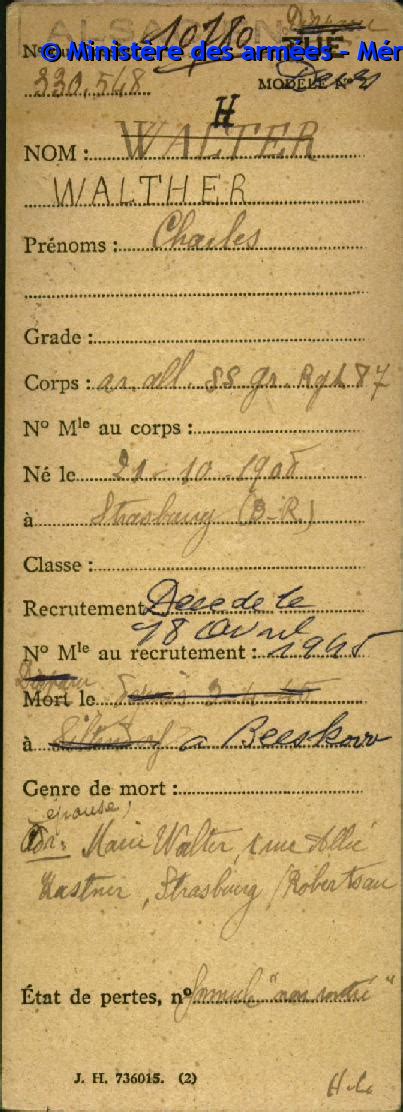 ALSACIEN
10780
Disparu
© Ministère des armées - Mér
330,548
MODÈLE N°
Décès
H
NOM : WALTER
WALTHER
Prénoms : Charles
Grade :
Corps : ar. all. SS gr. Rgt 87
N° Mle au corps :
Né le 21-10-1908
à Strasbourg (B-R)
Classe :
Recrutement Décédé le
18 avril
N° Mle au recrutement : 1945
Disparu
Mort le
à a Beeskow
Genre de mort :
épouse,
Adr: Marie Walter, rue
Kastner, Strasbourg /Robertsau
État de pertes, n° "non rentré"
J. H. 736015. (2)